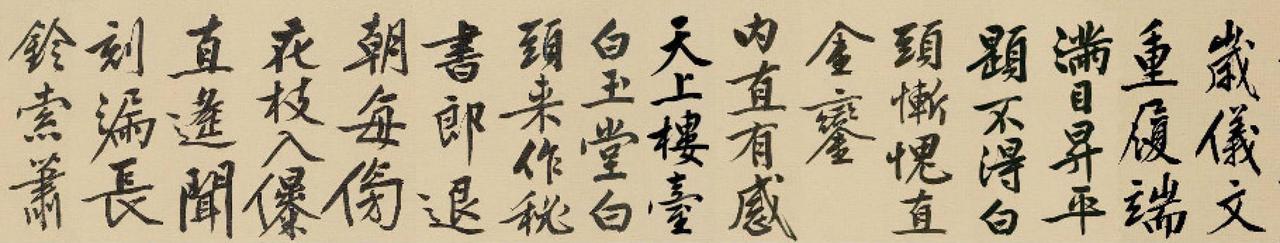 歲儀文
重履端
滿目昇平
題不得白
頭慚愧直
金鑾
内直有感
天上樓臺
白玉堂白
頭来作秘
書郎退
朝每傍
花枝入儤
直遙聞
刻漏長
鈴索蕭